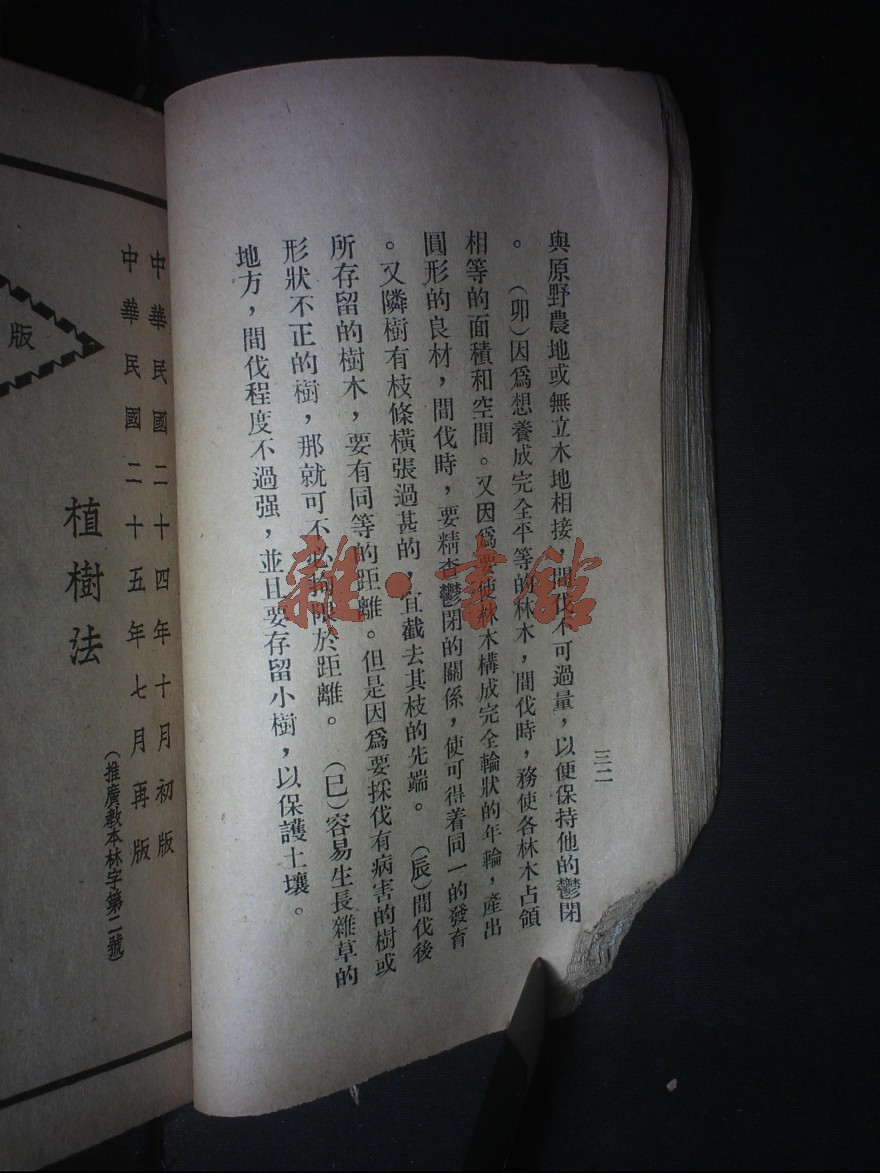 與原野農地或無立木地相接，間伐不可過量，以便保持他的鬱閉
。　(卯)因爲想養成完全平等的林木，間伐時，務使各林木占領
相等的面積和空間。又因爲要使林木構成完全輪狀的年輪，產出
圓形的良材，間伐時，要精查鬱閉的關係，使可得着同一的發育
。又隣樹有枝條橫張過甚的，宜截去其枝的先端。　(辰)間伐後
所存留的樹木，要有同等的距離。但是因爲要採伐有病害的樹或
形狀不正的樹，那就可不必拘限於距離。　(巳)容易生長雜草的
地方，間伐程度不過强，並且要存留小樹，以保護土壤。
三二
中華民國二十四年十月初版
中華民國二十五年七月再版
(推廣教本林字第二號)
植樹法
版
雜·書館